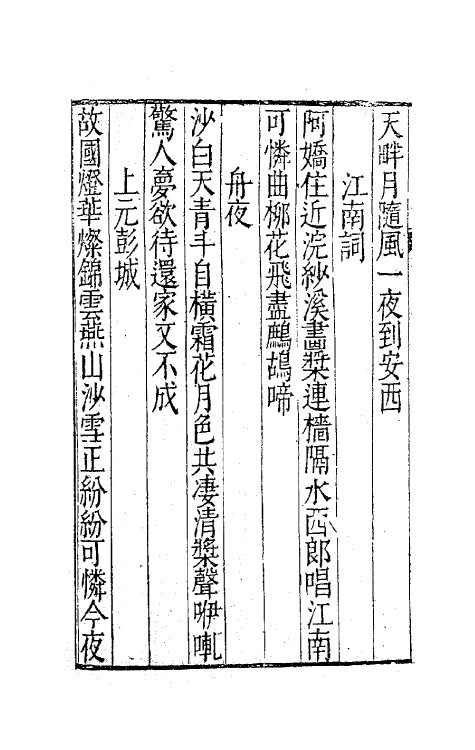 天畔月隨風一夜到安西
江南詞
阿嬌住近浣紗溪畫槳連檣隔水西郎唱江南
可憐曲柳花飛盡鷓鴣啼
舟夜
沙白天青斗自橫霜花月色共凄清槳聲咿軋
驚人夢欲待還家又不成
上元彭城
故國燈華燦錦雲燕山沙雪正紛紛可憐今夜